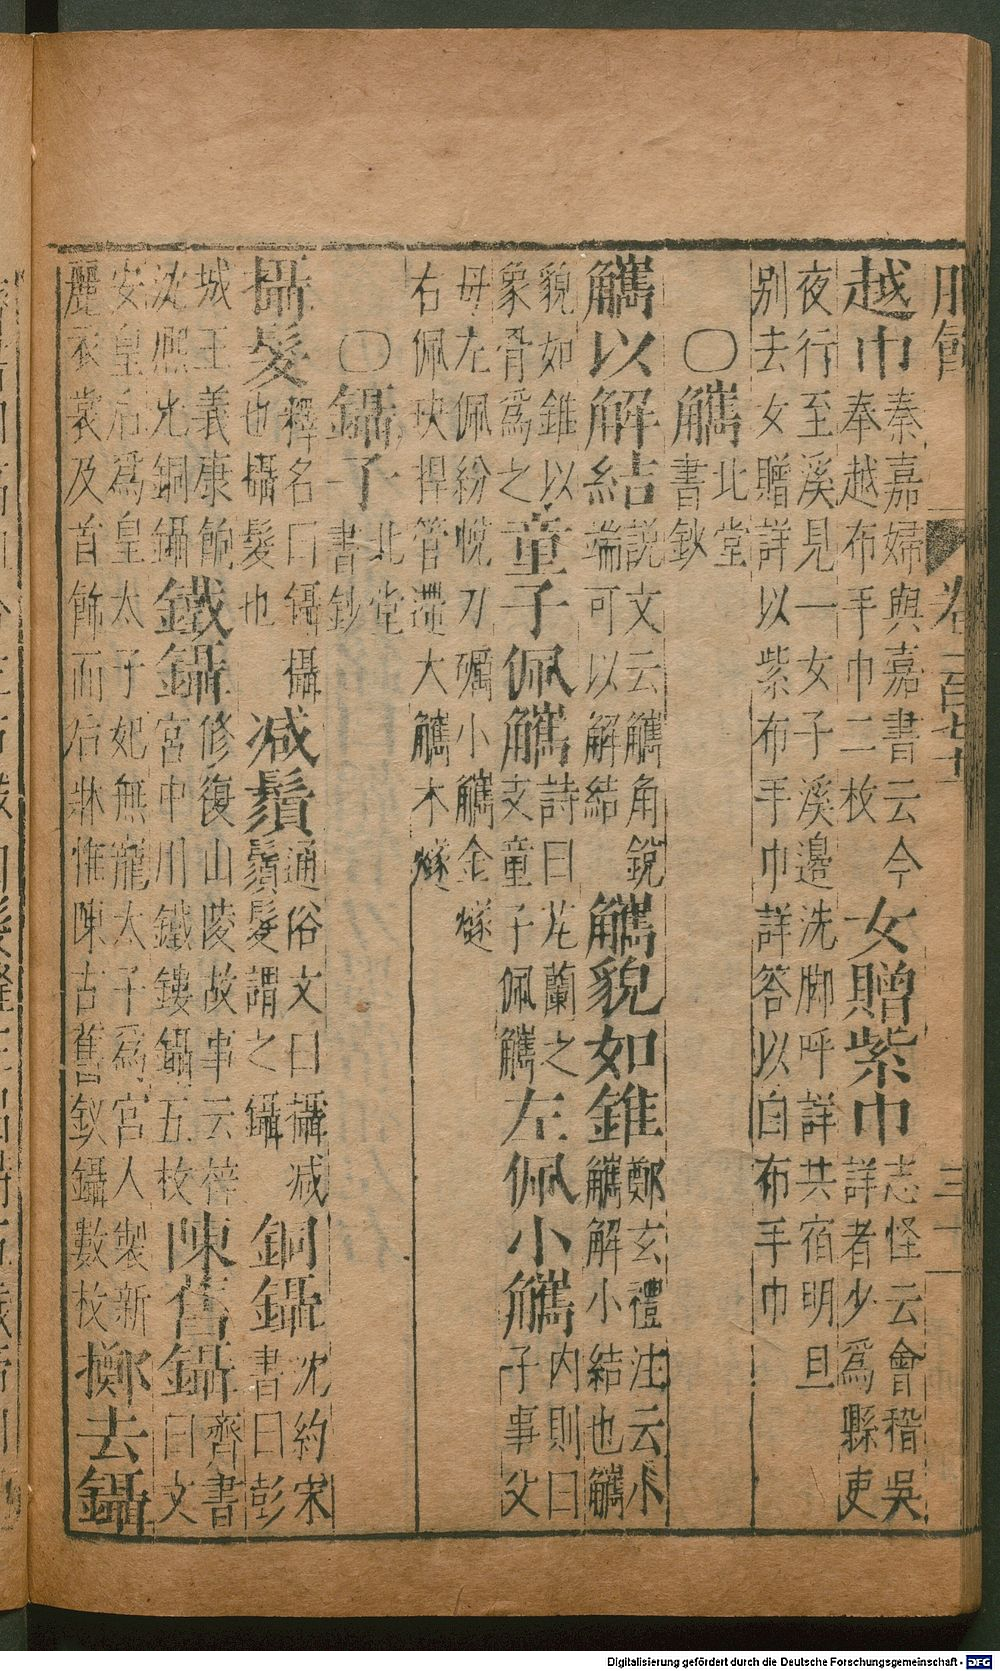 服飾 卷一百七十 三十一
越巾 秦嘉婦與嘉書云今奉越布手巾二枚 女贈紫巾 志怪云會稽吳詳者少爲縣吏
夜行至溪見一女子溪邊洗脚呼詳共宿明旦
別去女贈詳以紫布手巾詳答以白布手巾
〇觿 北堂書鈔
觿以解結 說文云觿角銳端可以解結 觿貌如錐 鄭玄禮注云小觿解小結也觿
貌如錐以象骨爲之 童子佩觿 詩曰芄蘭之支童子佩觿 左佩小觿 內則曰子事父
母左佩紛帨刀礪小觿金燧
右佩玦捍管遰大觿木燧
〇鑷子 北堂書鈔
攝髮 釋名曰鑷攝也攝髮也 减鬚 通俗文曰攝减鬚髮謂之鑷 銅鑷 沈約宋書曰彭
城王義康餉沈熙光銅鑷 鐵鑷 修復山陵故事云梓宮中用鐵鏤鑷五枚 陳舊鑷 齊書曰文
安皇后爲皇太子妃無寵太子爲宮人製新麗衣裳及首飾而后牀惟陳古舊釵鑷數枚 擲去鑷
Digitalisierung gefördert durch die Deutsche Forschungsgemeinschaft - DFG